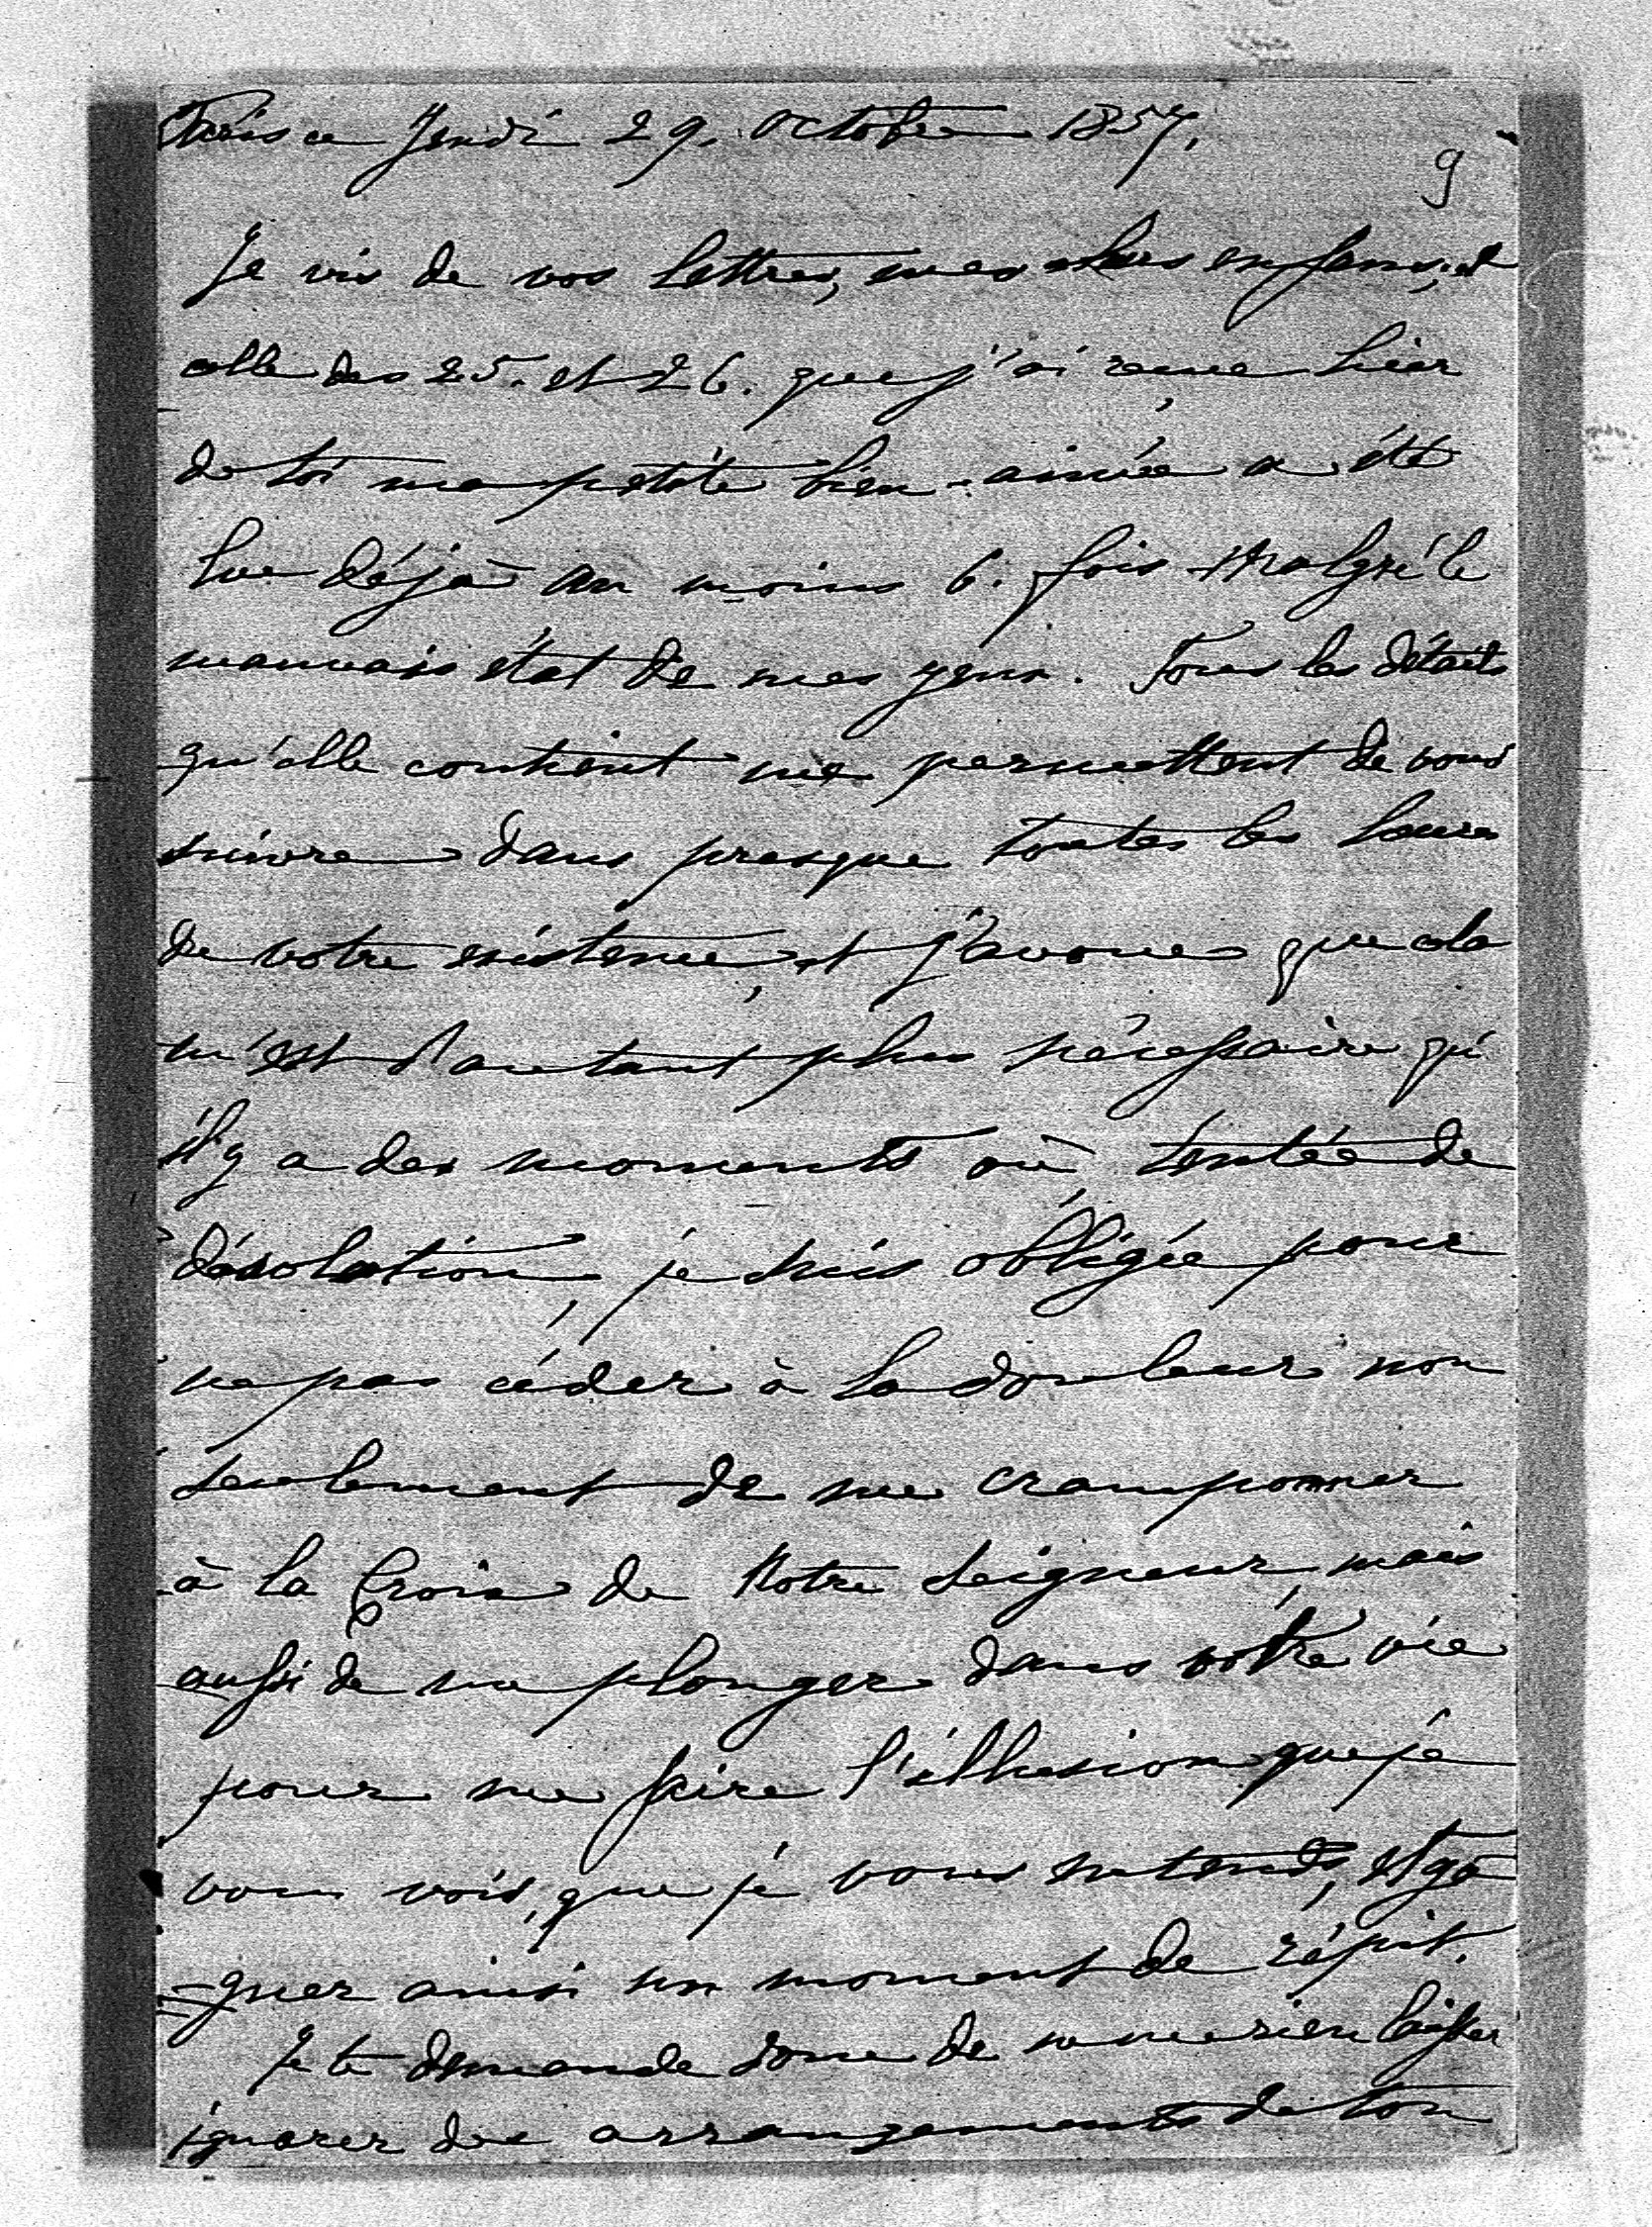 Paris ce Jeudi 29. Octobre 1857.
9
Je vis de vos lettres, mes chers enfans, et
celle des 25. et 26. que j'ai reçue hier
de toi ma petite bien-aimée a été
lue déjà au moins 6. fois malgré le
mauvais état de mes yeux. Tous les détails
qu'elle contient me permettent de vous
suivre dans presque toutes les heures
de votre existence, et j'avoue que cela
m'est d'autant plus nécessaire qu'
il y a des moments où tentée de
désolation, je suis obligée pour
ne pas céder à la douleur non
seulement de me cramponner
à la Croix de Notre Seigneur, mais
aussi de me plonger dans votre vie
pour me faire l'illusion que je
vous vois, que je vous entends, et ga
=gner ainsi un moment de répit.
Je te demande donc de ne me rien laisser
ignorer des arrangements de ton